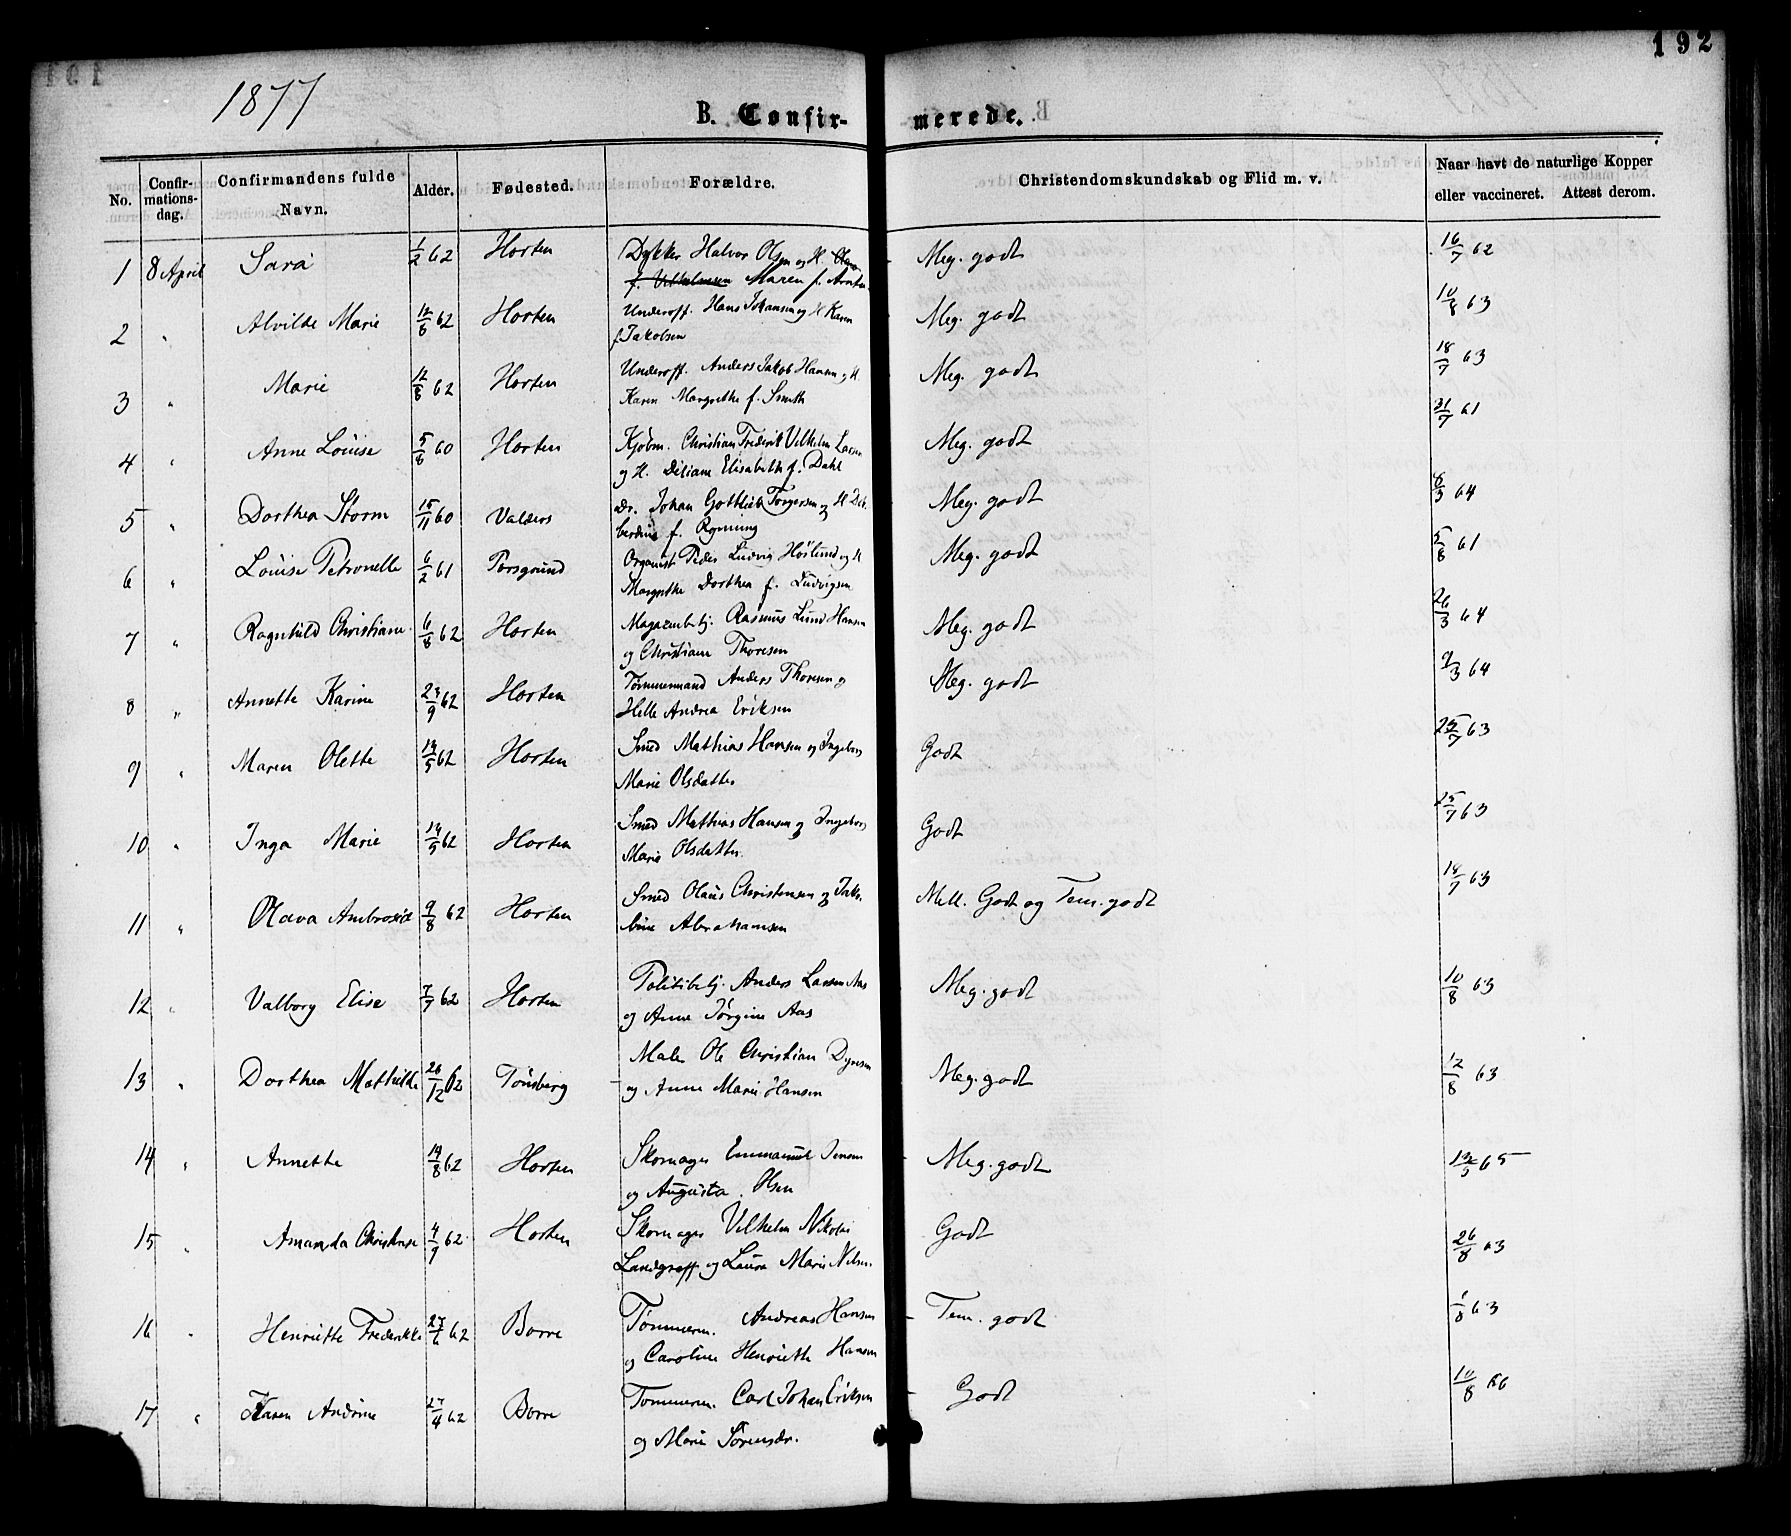 192
1877
B. Confirmerede.
No. Confirmationsdag. Confirmandens fulde Navn. Alder. Fødested. Forældre. Christendomskundskab og Flid m. v. Naar havt de naturlige Kopper eller vaccineret. Attest derom.
1 8 April Sara 1/2 62 Horten Dykker Halvor Olsen og H. Maren f. Meg. godt 16/7 62
2 " Alvilde Marie 12/8 62 Horten Underoff. Hans Johansen og H Karen f. Jakobsen Meg. godt 10/8 63
3 " Marie 12/8 62 Horten Underoff. Anders Jakob Hansen og H. Karen Margrethe f. Smith Meg. godt 18/7 63
4 " Anne Louise 5/8 60 Horten Kjøbm. Christian Frederik Vilhelm Larsen og H. Elisabeth f. Dahl Meg. godt 31/7 61
5 " Dorthea Storm 15/11 60 Valders Dr. Johan Gottlieb Torgersen og H f. Rynning Meg. godt 8/3 64
6 " Louise Petronelle 6/2 61 Porsgrund Organist Peder Ludvig Høslund og H Margrethe Dorthea f. Ludvigsen Meg. godt 5/8 61
7 " Ragnhild Christiane 6/8 62 Horten Magazinbetj. Rasmus Lund Hansen og Christiane Thoresen Meg. godt 26/3 64
8 " Annette Karine 27/9 62 Horten Tømmermand Anders Thoresen og Helle Andrea Eriksen Meg. godt 9/3 64
9 " Maren Olette 14/5 62 Horten Smed Mathias Hansen og Ingeborg Marie Olsdatter Godt 25/7 63
10 " Inga Marie 14/5 62 Horten Smed Mathias Hansen og Ingeborg Marie Olsdatter Godt 25/7 63
11 " Olava Ambrosia 9/8 62 Horten Smed Olaus Christensen og Jakobine Abrahamsen Mell. Godt og Tem. godt 18/7 63
12 " Valborg Elise 7/7 62 Horten Politibetj. Anders Larsen Aas og Anne Jørgine Aas Meg. godt 10/8 63
13 " Dorthea Mathilde 26/12 62 Tönsberg Maler Ole Christian Dyresen og Anne Marie Hansen Meg. godt 12/8 63
14 " Annette 14/8 62 Horten Skomager Emmanuel Jensen og Augusta Olsen Meg. godt 13/5 65
15 " Amanda Christine 4/7 62 Horten Skomager Vilhelm Nikolai Landgraff og Laura Marie Nilsen Godt 26/8 63
16 " Henriette Frederikke 27/6 62 Borre Tømmerm. Andreas Hansen og Caroline Henriette Hansen Tem. godt 1/8 63
17 " Karen Andrine 27/4 62 Borre Tømmerm. Carl Johan Eriksen og Marie Sørensdr. Godt 10/8 66